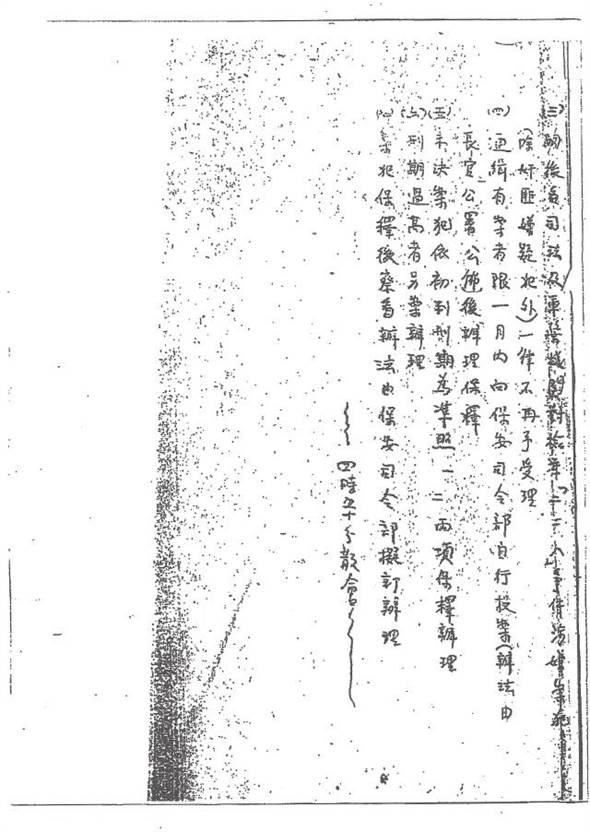 (三)嗣後各司法及軍法機關對於「二二八」事件涉嫌案犯
(除奸匪嫌疑犯外)一律不再予受理
(四)通緝有案者限一月內向保安司令部自行投案(辦法由
長官公署公佈後辦理保釋
(五)未決案犯依初判刑期為準照一二兩項保釋辦理
(六)刑期過高者另案辦理
案犯保釋後察看辦法由保安司令部擬訂辦理
四時五十分散會